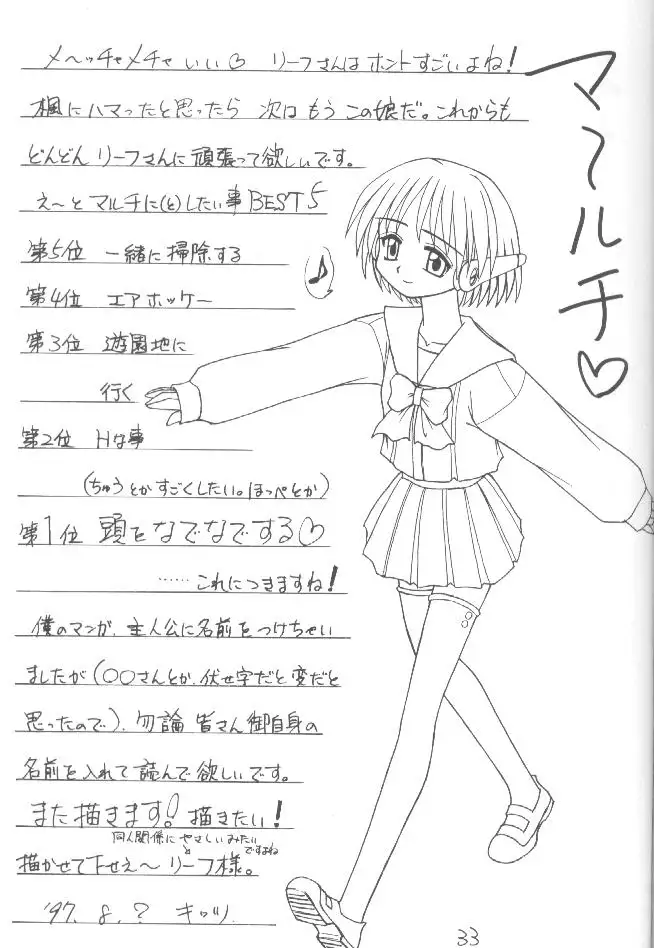 マルチ♡
メ〜ッチャメチャ いい♡ リーフさんは ホントすごいよね!
楓にハマったと思ったら 次は もう この娘だ。これからも
どんどん リーフさんに 頑張って欲しいです。
え〜と マルチに(と)したい事 BEST5
第5位 一緒に掃除する
第4位 エアホッケー
第3位 遊園地に
行く
第2位 Hな事
(ちゅうとかすごくしたい。ほっぺとか)
第1位 頭をなでなでする♡
……これにつきますね!
僕のマンガ、主人公に名前をつけちゃい
ましたが(○○さんとか、伏せ字だと変だと
思ったので)、勿論 皆さん御自身の
名前を入れて読んで欲しいです。
また描きます! 描きたい!
同人関係に やさしいみたい
ですよね
描かせて下せえ〜 リーフ様。
'97. 8. ?
33